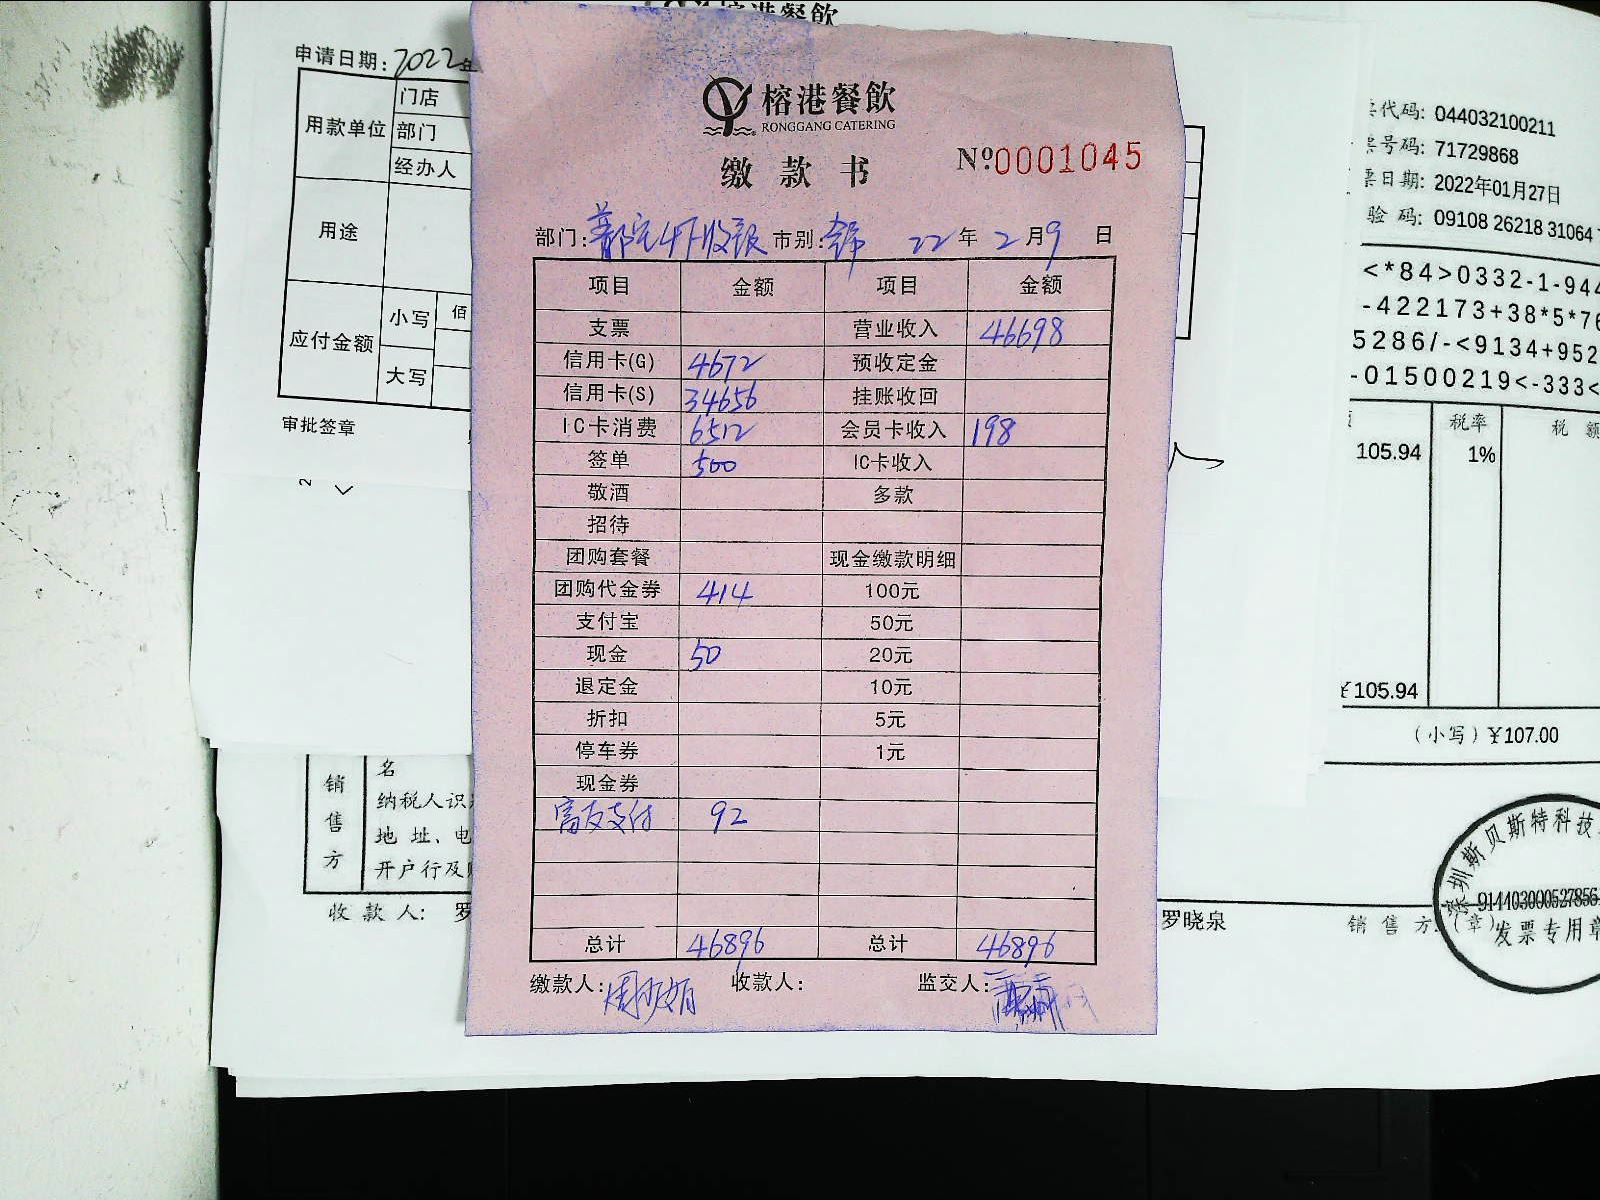 榕港餐飲
申请日期：2022年
用款单位
门店
部门
经办人
用途
应付金额
小写
佰
大写
审批签章
榕港餐飲
RONGGANG CATERING
缴款书
Nº0001045
部门： 4F收银 市别： 22年2月9日
项目 金额 项目 金额
支票 营业收入 46698
信用卡(G) 4672 预收定金
信用卡(S) 34656 挂账收回
IC卡消费 6512 会员卡收入 198
签单 500 IC卡收入
敬酒 多款
招待
团购套餐 现金缴款明细
团购代金券 414 100元
支付宝 50元
现金 50 20元
退定金 10元
折扣 5元
停车券 1元
现金券
支付 92
总计 46896 总计 46896
缴款人： 收款人： 监交人：
票代码: 044032100211
票号码: 71729868
票日期: 2022年01月27日
验 码: 09108 26218 31064
<*84>0332-1-944
-422173+38*5*76
5286/-<9134+952
-01500219<-333<
税率 税 额
105.94 1%
¥105.94
（小写）¥107.00
销售方
名
纳税人识
地 址、电
开户行及
收 款 人： 罗
罗晓泉
销 售 方：（章）
深圳斯贝斯特科技
91440300052785
发票专用章